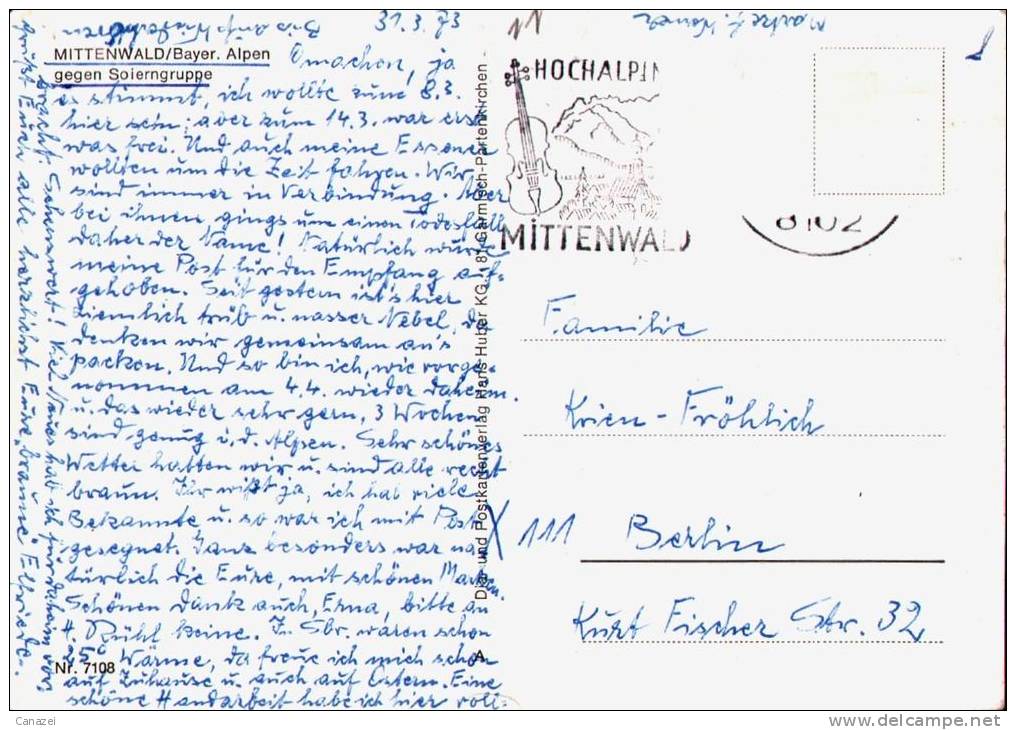 Bis aufs Wiedersehen
31.3.73
Marke f. 
MITTENWALD/Bayer. Alpen
gegen Soierngruppe
Omachen, ja
es stimmt, ich wollte zum 8.3.
hier sein; aber zum 14.3. war erst
was frei. Und auch meine Essener
wollten um die Zeit fahren. Wir
sind immer in Verbindung. Aber
bei ihnen gings um einen Todesfall
daher der Name! Natürlich wurde
meine Post für den Empfang auf-
gehoben. Seit gestern ist's hier
ziemlich trüb u. nasser Nebel, da
denken wir gemeinsam an's
packen. Und so bin ich, wie vorge-
nommen am 4.4. wieder daheim.
u. das wieder sehr gern, 3 Wochen
sind genug i. d. Alpen. Sehr schönes
Wetter hatten wir u. sind alle recht
braun. Ihr wißt ja, ich hab viele
Bekannte u. so war ich mit Post
gesegnet. Ganz besonders war na-
türlich die Eure, mit schönen Marken.
Schönen Dank auch, Erna, bitte an
H. Rühl keine. In Sbr. waren schon
25° Wärme, da freue ich mich schon
auf Zuhause u. auch auf Ostern. Eine
schöne Handarbeit habe ich hier voll-
bracht. Sehenswert! Viel Neues hab ich für daheim vor.
Grüßt Euch alle herzlichst Eure "braune" Elfriede.
Nr. 7108
Dia- und Postkartenverlag Hans Huber KG, 81 Garmisch-Partenkirchen
A
HOCHALPIN
MITTENWALD
8102
Familie
Krien-Fröhlich
X 111 Berlin
Kurt Fischer Str. 32
Canazei
www.delcampe.net